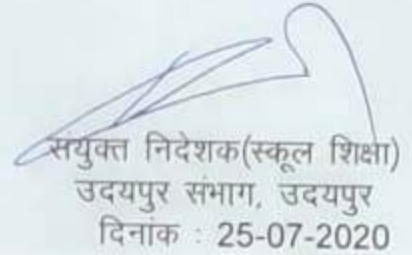 संयुक्त निदेशक(स्कूल शिक्षा)
उदयपुर संभाग, उदयपुर
दिनांक : 25-07-2020